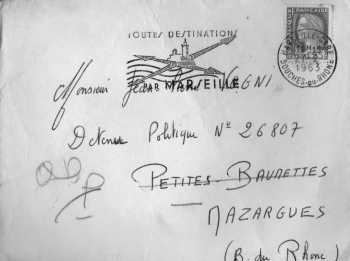 TOUTES DESTINATIONS
PAR MARSEILLE
1963
BOUCHES-DU-RHONE
Monsieur
Détenu Politique N° 26807
PETITES-BAUMETTES
MAZARGUES
(B. du Rhône)